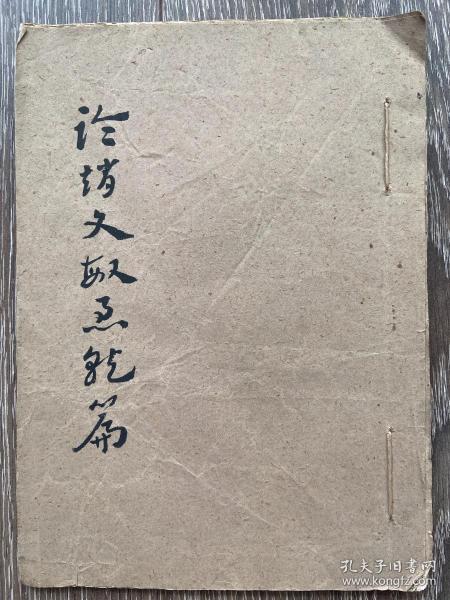 论赵文敏急就篇
孔夫子旧书网
www.kongfz.com